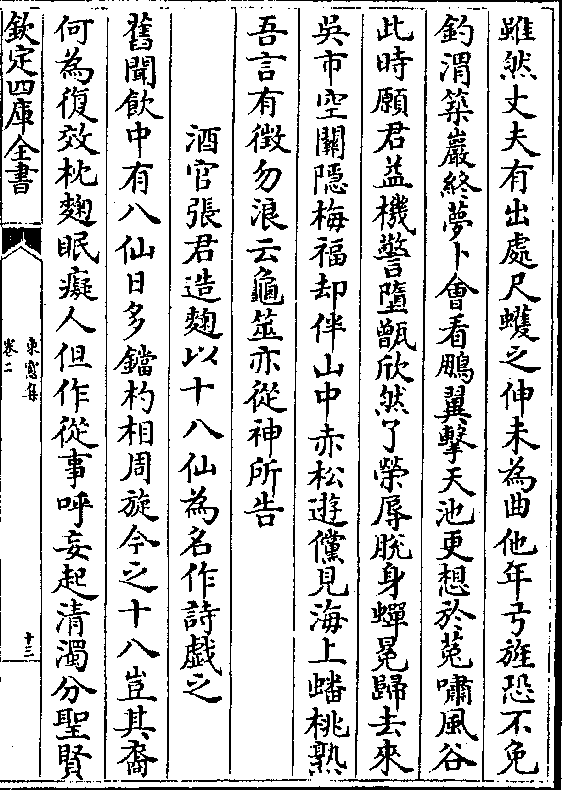 雖然丈夫有出處尺蠖之伸未為曲他年弓旌恐不免
釣渭築巖終夢卜會看鵬翼擊天池更想於菟嘯風谷
此時願君益機警墮甑欣然了榮辱脫身蟬冕歸去來
吳市空關隱梅福却伴山中赤松遊儻見海上蟠桃熟
吾言有徵勿浪云龜筮亦從神所告
酒官張君造麴以十八仙為名作詩戲之
舊聞飲中有八仙日多鐺杓相周旋今之十八豈其裔
何為復效枕麴眠癡人但作從事呼妄起清濁分聖賢
欽定四庫全書
東窻集
卷二
十三